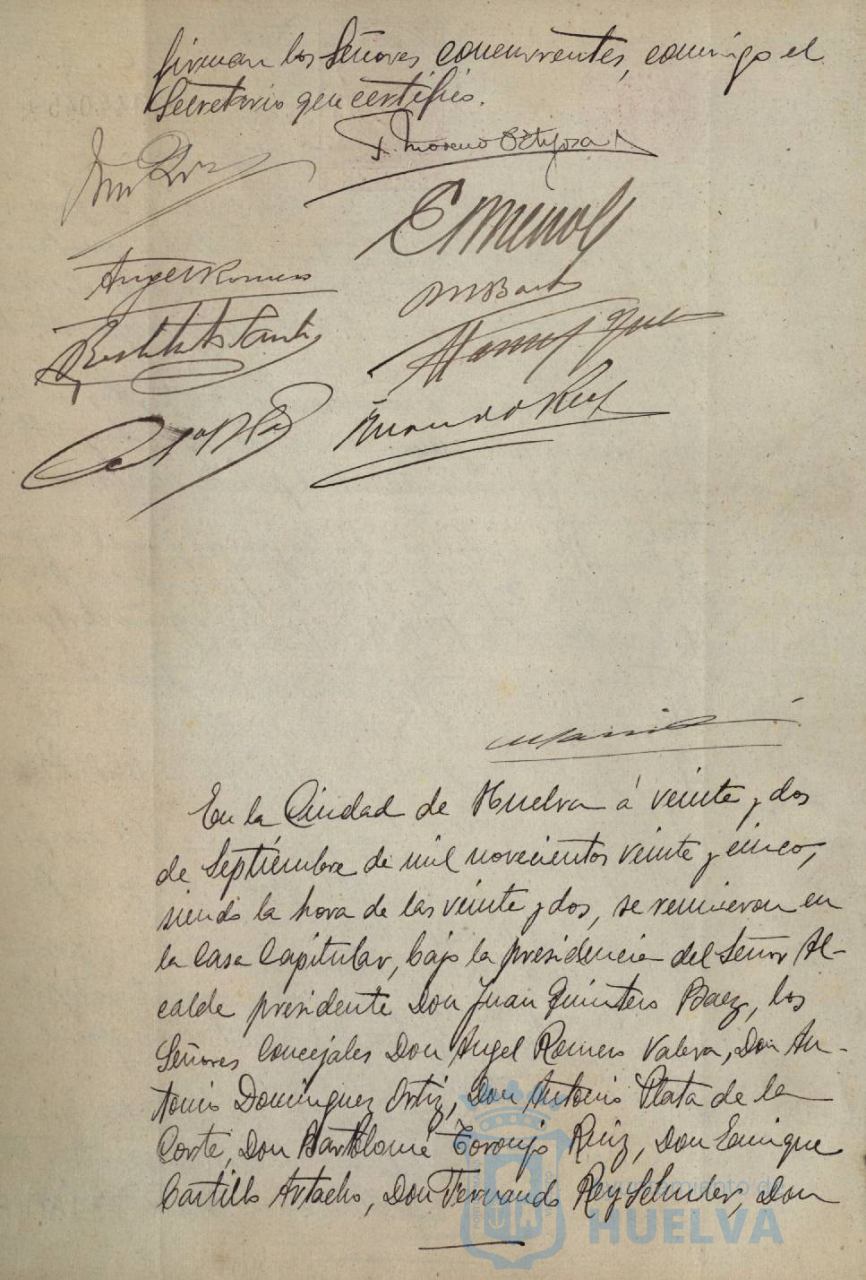 firman los Señores concurrentes, conmigo el
Secretario que certifico.
F. Moreno Ortega
Angel Romero
M Bart
Fernando Rey
En la Ciudad de Huelva á veinte y dos
de Septiembre de mil novecientos veinte y cinco,
siendo la hora de las veinte y dos, se reunieron en
la Casa Capitular, bajo la presidencia del Señor Al-
calde presidente Don Juan Quintero Baez, los
Señores Concejales Don Angel Romero Valera, Don An-
tonio Dominguez Ortiz, Don Antonio Plata de la
Corte, Don Bartolomé Toronjo Ruiz, Don Enrique
Castillo Artacho, Don Fernando Rey Schuler, Don
Ayuntamiento de
HUELVA